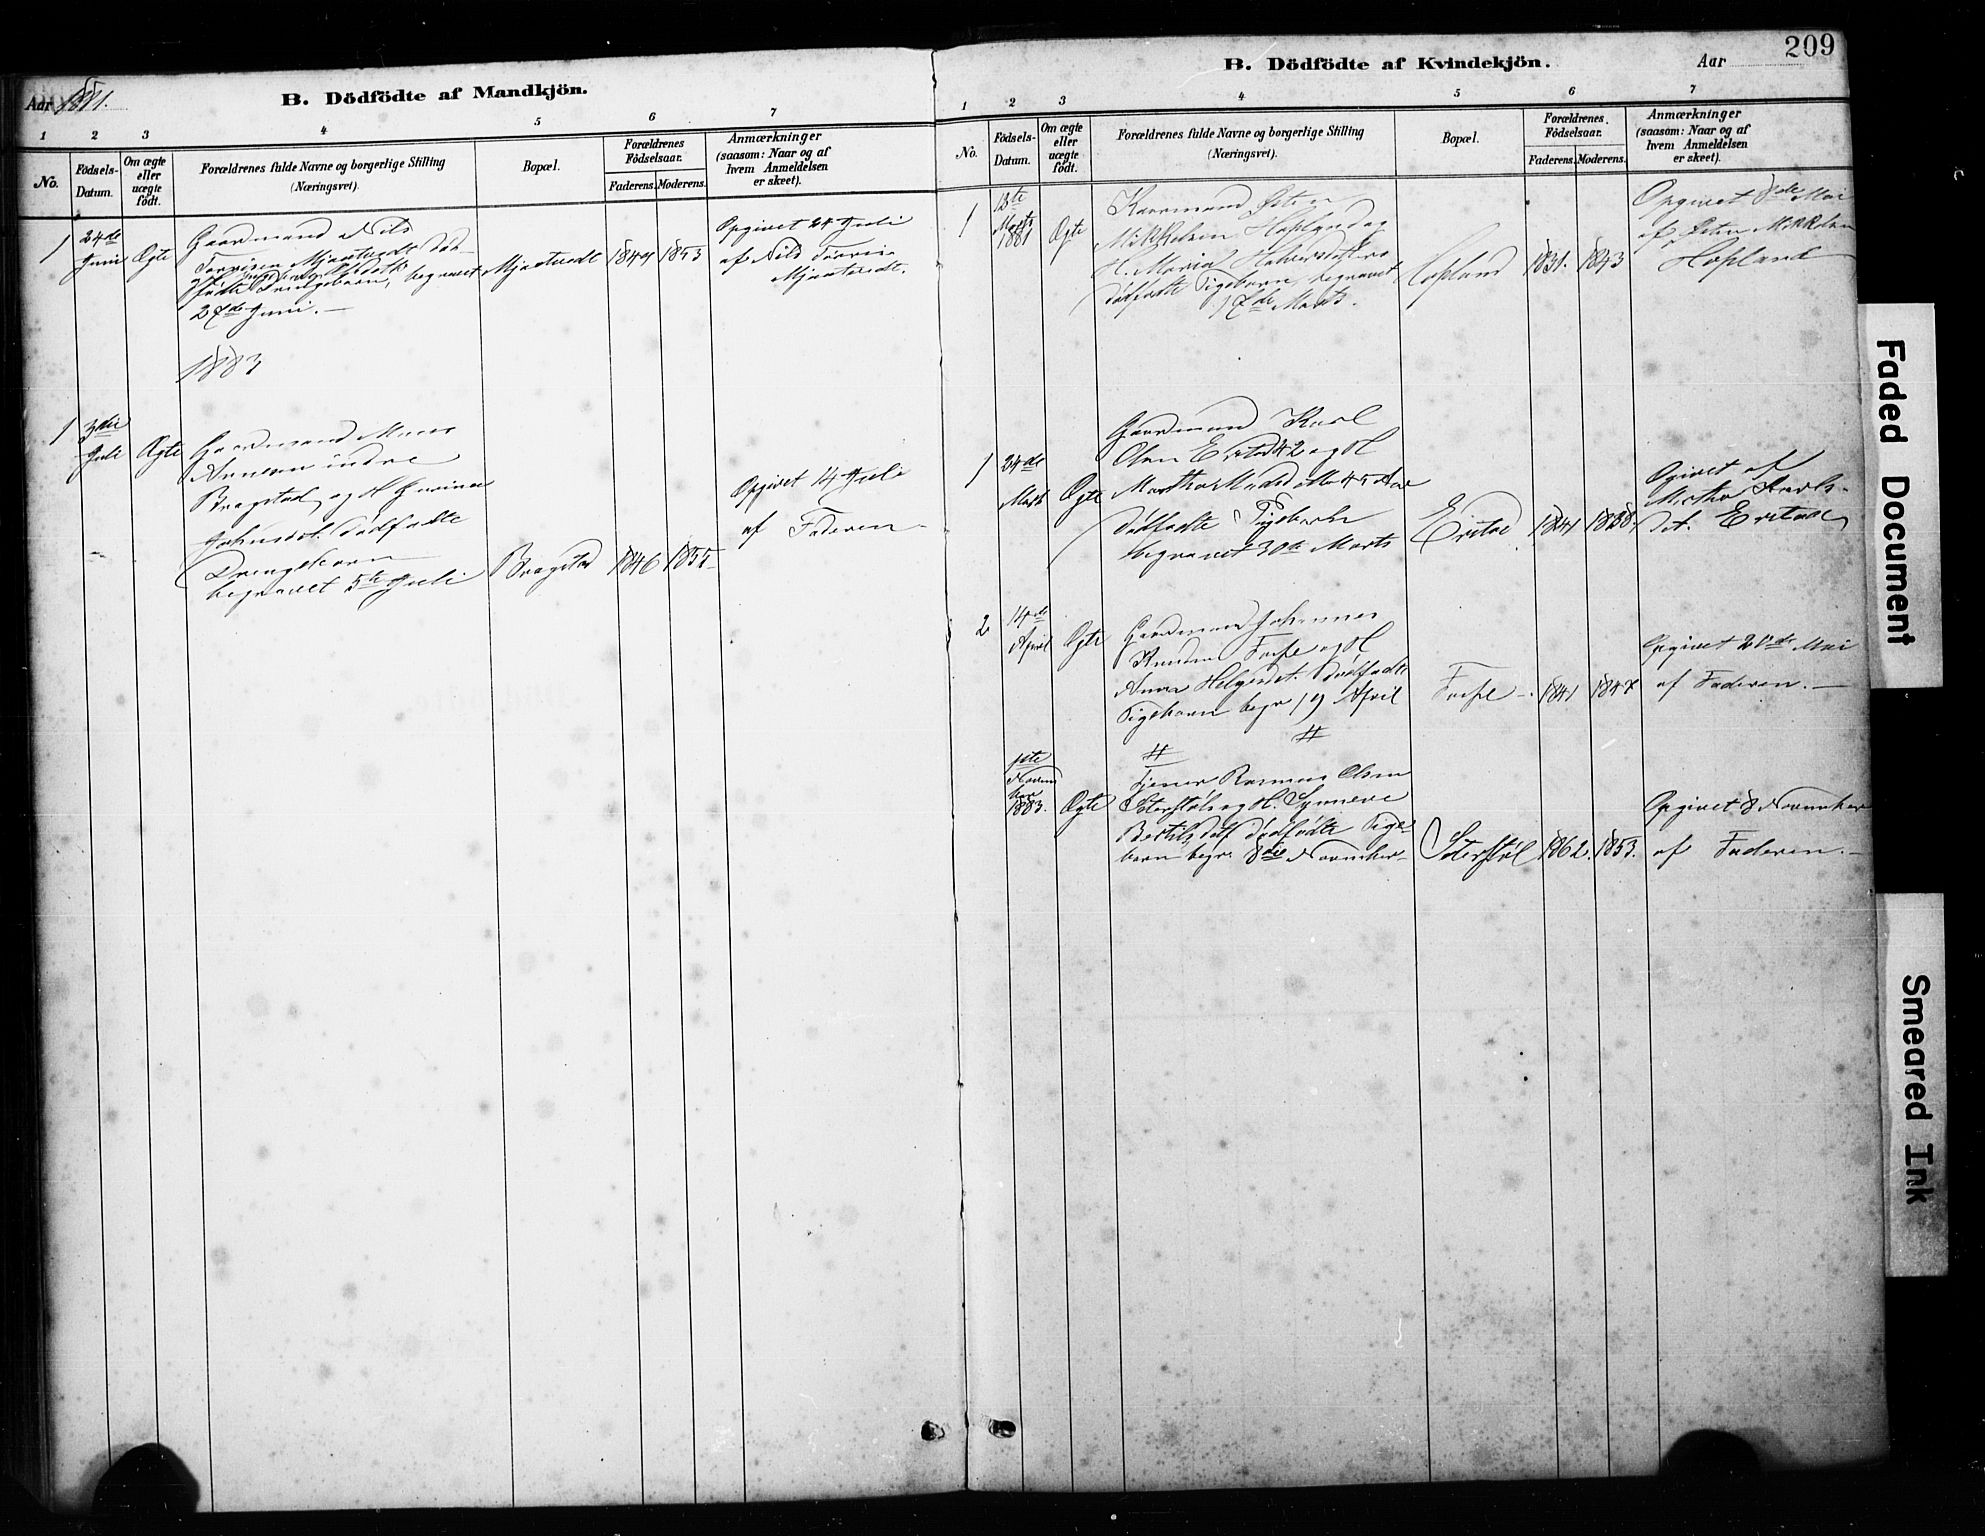 209
Aar 1881.
B. Dödfödte af Mandkjön.
1 2 3 4 5 6 7
No.
Födsels-
Datum.
Om ægte
eller
uægte
födt.
Forældrenes fulde Navne og borgerlige Stilling
(Næringsvei).
Bopæl.
Forældrenes
Födselsaar.
Faderens. Moderens.
Anmærkninger
(saasom: Naar og af
hvem Anmeldelsen
er skeet).
1
24de
Juni
Ægte
Gaardmand Nils
födte Drengebarn, begravet
27de Juni. —
1853
Opgivet 24 Juli
af Nils
1883
1
3die
Juli
Ægte
Gaardmand Mons
Annesen indre
Bragstad og H
Johnsdt. dödfödte
Drengebarn
begravet 5te Juli
Bragstad
1846
1855
Opgivet 14 Juli
af Faderen
B. Dödfödte af Kvindekjön.
Aar
1 2 3 4 5 6 7
No.
Födsels-
Datum.
Om ægte
eller
uægte
födt.
Forældrenes fulde Navne og borgerlige Stilling
(Næringsvei).
Bopæl.
Forældrenes
Födselsaar.
Faderens. Moderens.
Anmærkninger
(saasom: Naar og af
hvem Anmeldelsen
er skeet).
1
13te
Marts
1881
Ægte
Mikkelsen
H. Maria
dödfödte Pigebarn, begravet
17de Marts.
Hopland
1831.
1843
Opgivet 8de Mai
af Mikkelsen
Hopland
1
24de
Marts
Ægte
Gaardmand Karl
Olsen Erstad 42 og H
Martha 45 Aar
dödfödte Pigebarn
begravet 30te Marts
Erstad
1841
1838
Opgivet af
Karls-
dt. Erstad
2
14de
April
Ægte
Gaardmand Johannes
Knudsen og H
Anna Helgesdt. dödfödte
Pigebarn begr 19 April
1841
1847
Opgivet 20de Mai
af Faderen. —
1ste
Novem
ber
1883.
Ægte
Tjener Rasmus Olsen
og H. Synneve
Bertilsdatt dödfödte Pige-
barn begr. 8de November
1862.
1853.
Opgivet 8 November
af Faderen. —
Faded Document
Smeared Ink